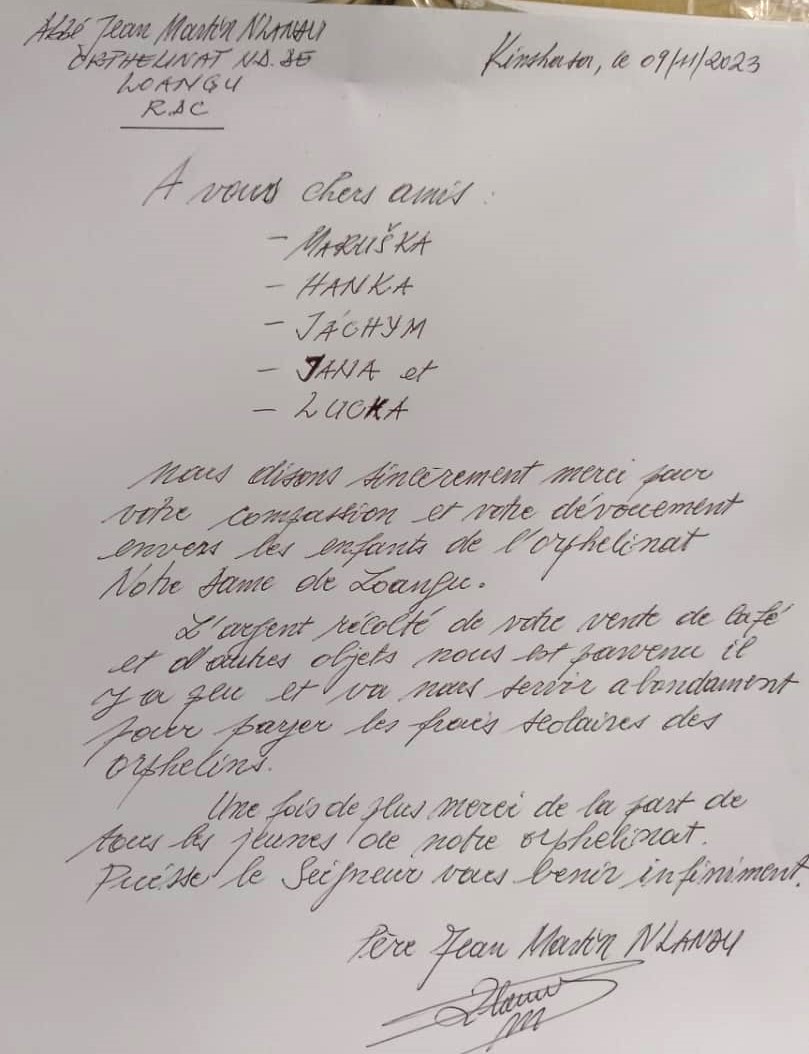 Abbé Jean Martin NLANDU
ORPHELINAT ND. DE
LOANGU
RDC
Kinshasa, le 09/11/2023
A vous chers amis :
- MARUŠKA
- HANKA
- JÁCHYM
- JANA et
- LUCKA
Nous disons sincèrement merci pour
votre compassion et votre dévouement
envers les enfants de l'orphelinat
Notre Dame de Loangu.
L'argent récolté de votre vente de café
et d'autres objets nous est parvenu il
y a peu et va nous servir abondament
pour payer les frais scolaires des
orphelins.
Une fois de plus merci de la part de
tous les jeunes de notre orphelinat.
Puisse le Seigneur vous benir infiniment.
Père Jean Martin NLANDU